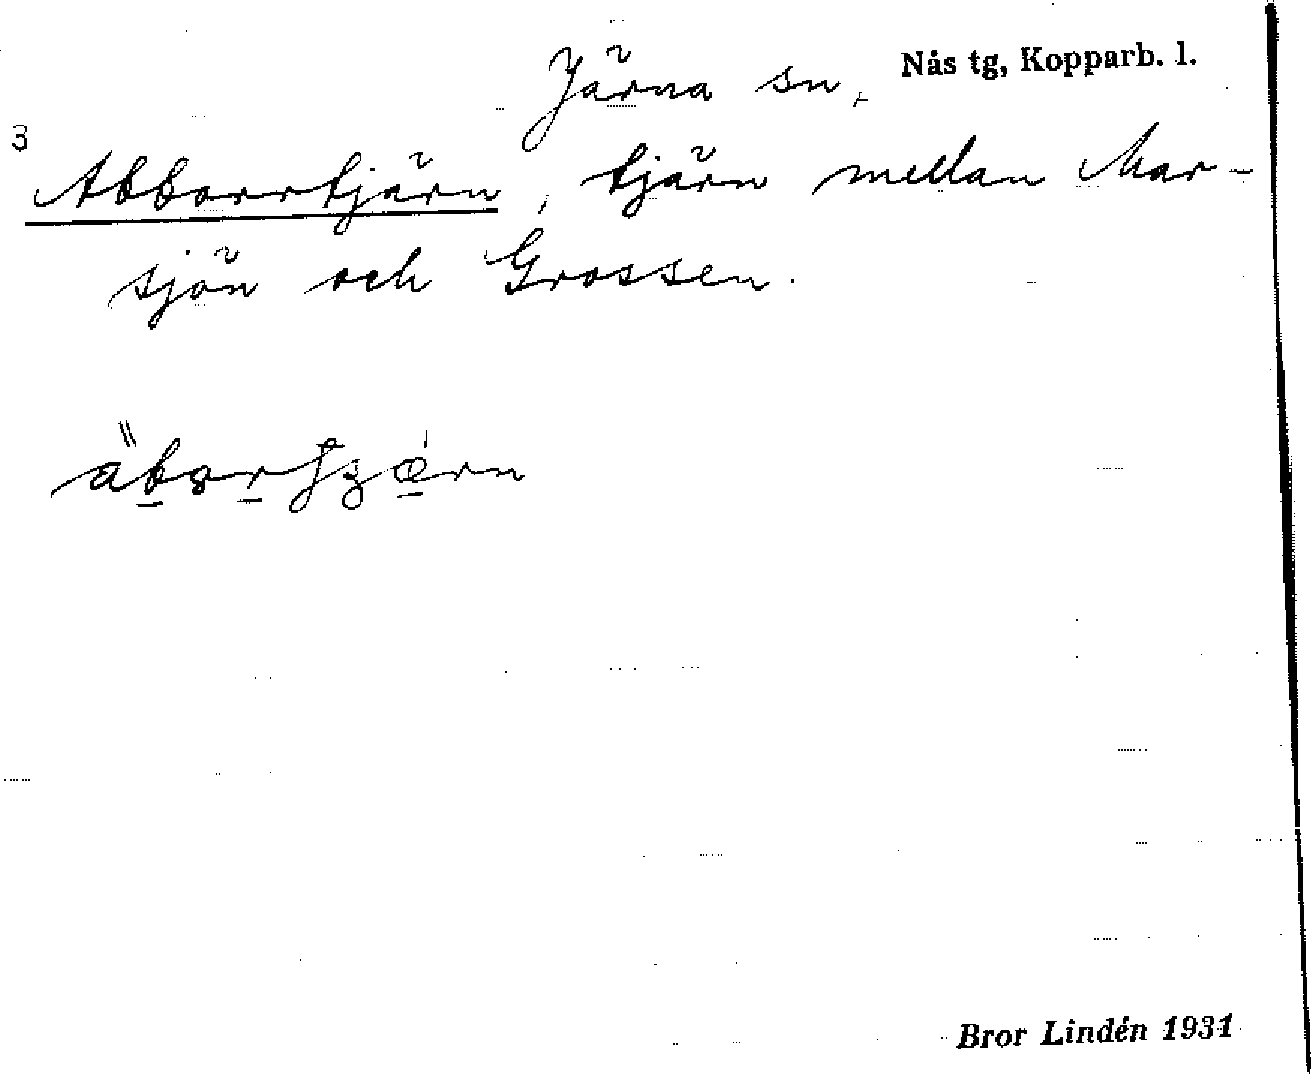 Järna sn, Nås tg, Kopparb. l.
3
Abborrtjärn, tjärn mellan Mar-
sjön och Grossen.
Bror Lindén 1931